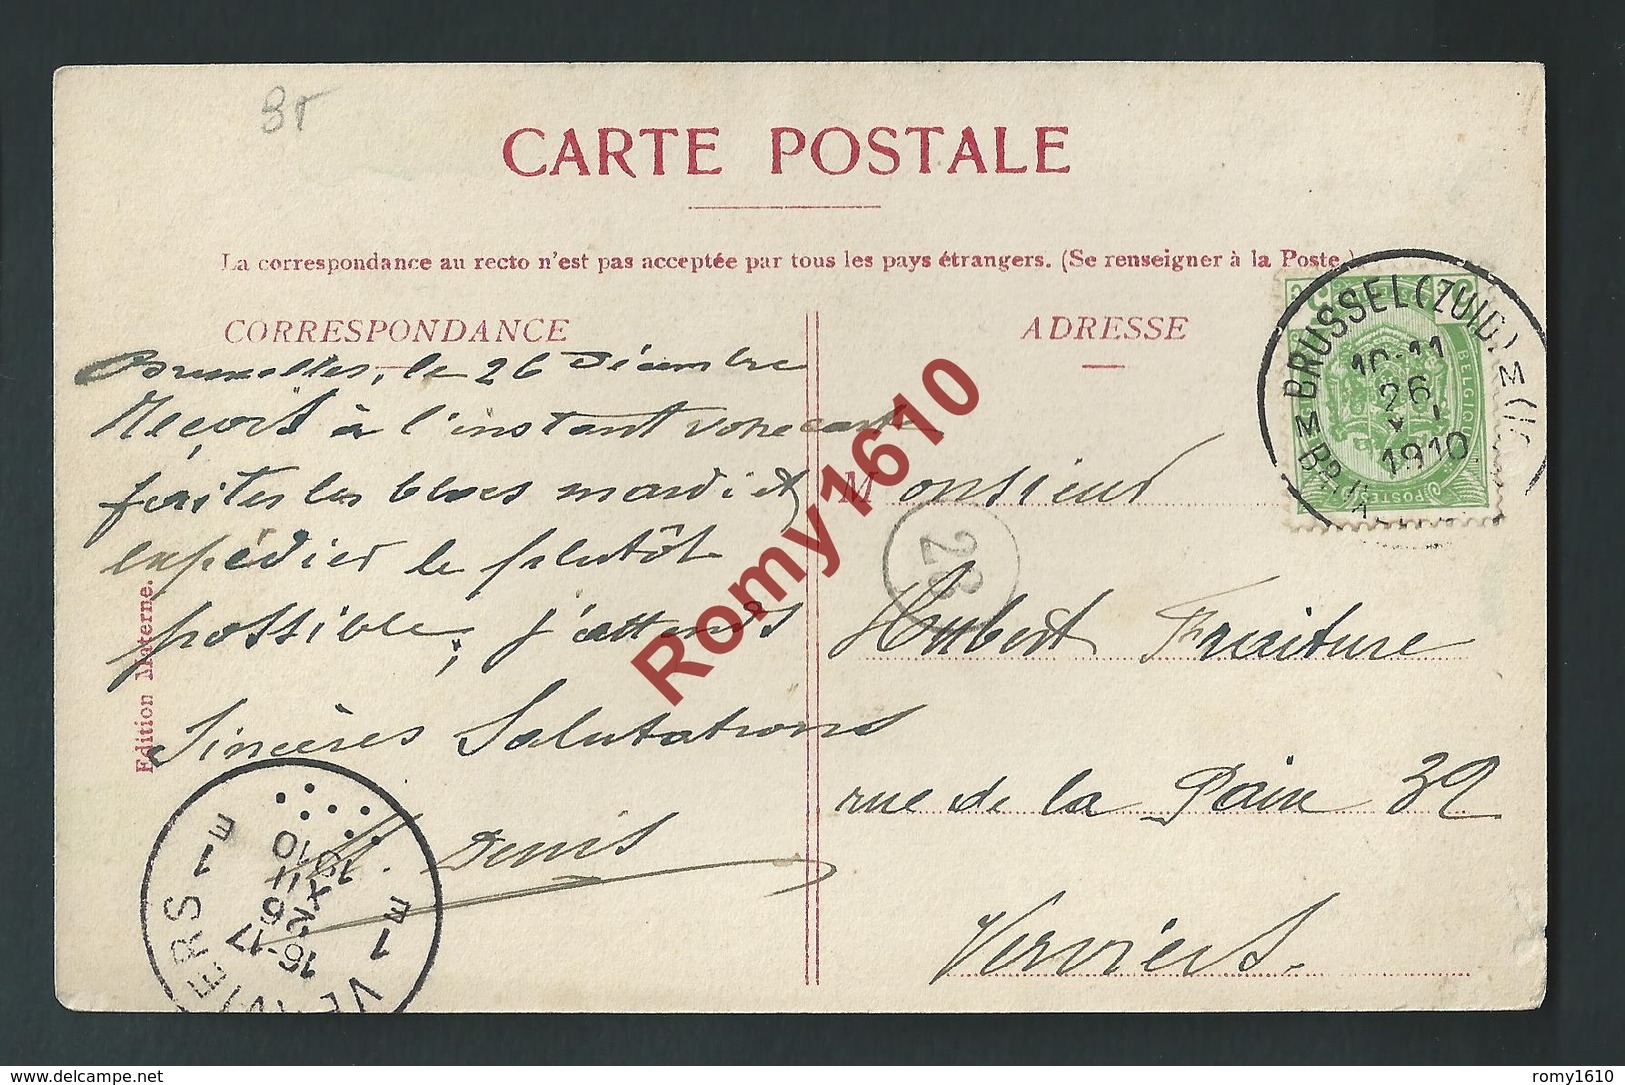 8T
CARTE POSTALE
La correspondance au recto n'est pas acceptée par tous les pays étrangers. (Se renseigner à la Poste.)
CORRESPONDANCE
Bruxelles, le 26 Décembre
Reçois à l'instant votre carte
faites les blocs mardi et
expédier le plutôt
possible, j'attends
Sincères Salutations
Denis
Edition Materne.
ADRESSE
Monsieur
Hubert Fraiture
rue de la Paix 32
Verviers.
28
BRUSSEL (ZUID)
10-11
26
1910
BELGIQUE
POSTES
VERVIERS
1E
1E
16-17
26
XII
1910
Romy1610
delcampe.net
romy1610